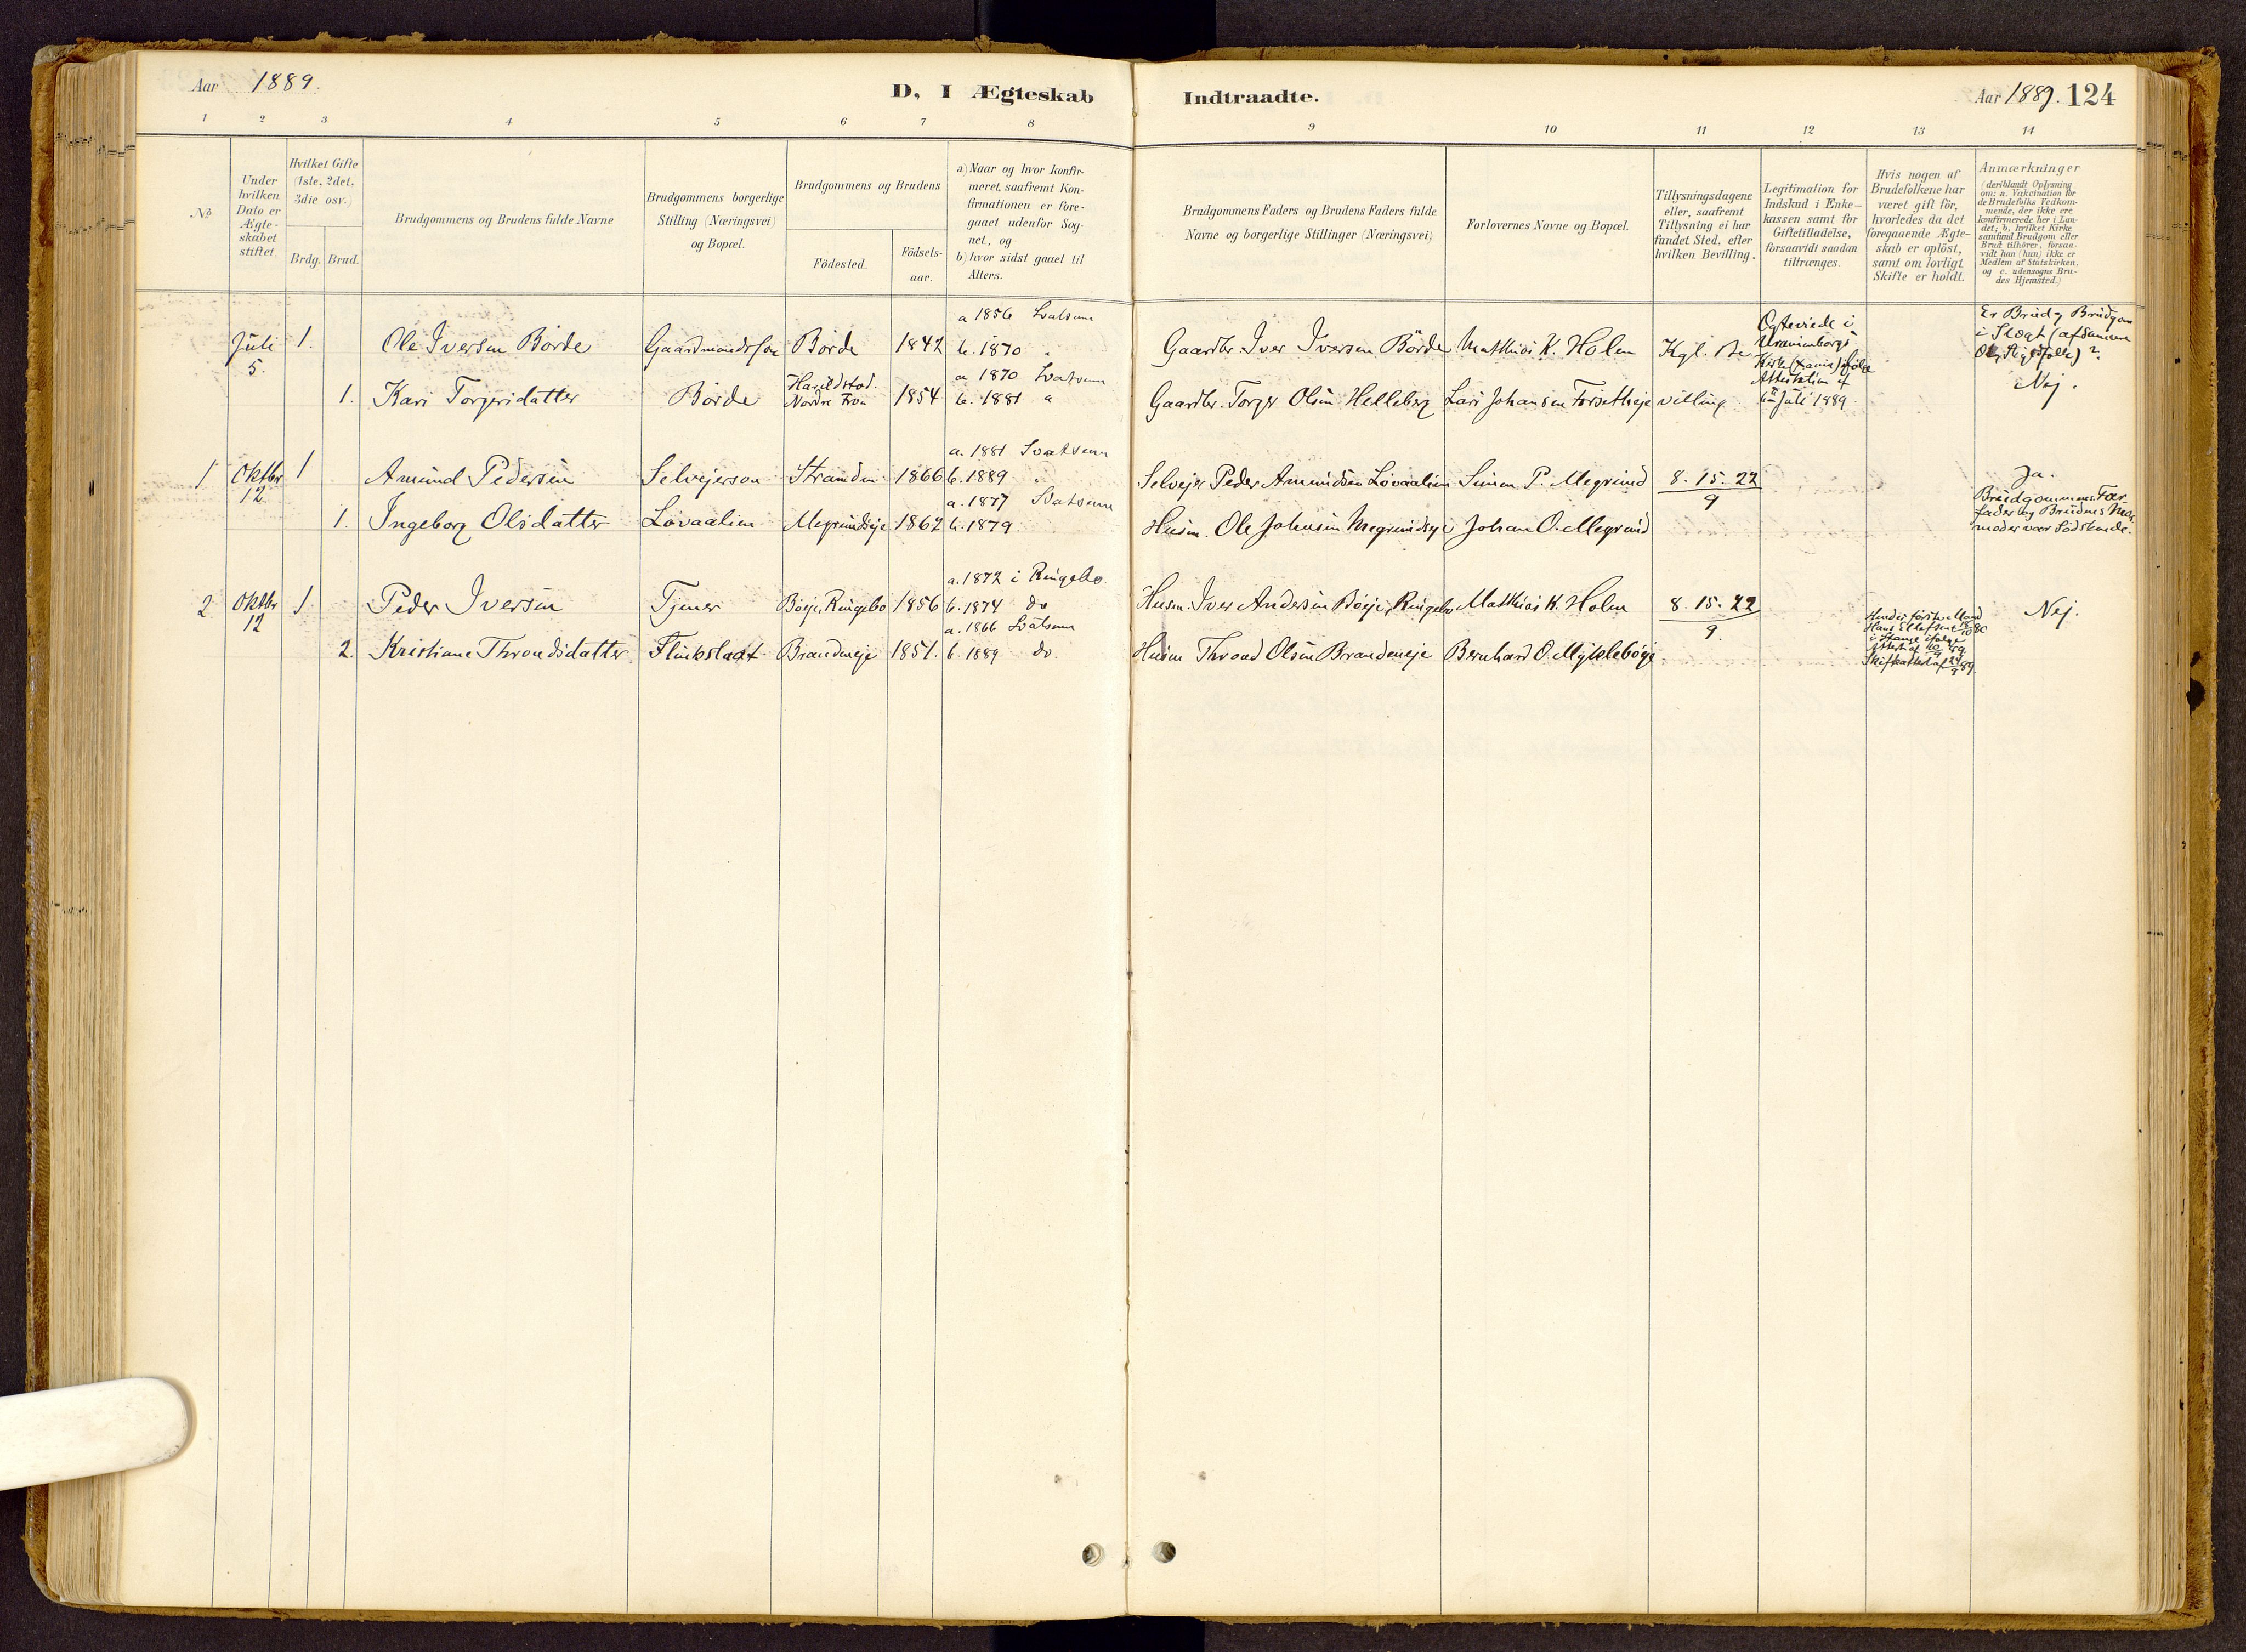 Aar 1889.
D, I Ægteskab Indtraadte.
Aar 1889. 124
1 2 3 4 5 6 7 8 9 10 11 12 13 14
No
Under hvilken Dato er Ægte-skabet stiftet.
Hvilket Gifte (1ste, 2det, 3die osv.)
Brdg. Brud.
Brudgommens og Brudens fulde Navne
Brudgommens borgerlige Stilling (Næringsvei) og Bopæl.
Brudgommens og Brudens
Födested.
Födsels-aar.
a) Naar og hvor konfir-
meret, saafremt Kon-
firmationen er fore-
gaaet udenfor Sog-
net, og
b) hvor sidst gaaet til
Alters.
Brudgommens Faders og Brudens Faders fulde
Navne og borgerlige Stillinger (Næringsvei)
Forlovernes Navne og Bopæl.
Tillysningsdagene
eller, saafremt
Tillysning ei har
fundet Sted, efter
hvilken Bevilling.
Legitimation for
Indskud i Enke-
kassen samt for
Giftetilladelse,
forsaavidt saadan
tiltrænges.
Hvis nogen af
Brudefolkene har
været gift för,
hvorledes da det
foregaaende Ægte-
skab er oplöst,
samt om lovligt
Skifte er holdt.
Anmærkninger
(deriblandt Oplysning
om: a. Vakcination for
de Brudefolks Vedkom-
mende, der ikke ere
konfirmerede her i Lan-
det; b. hvilket Kirke
samfund Brudgom eller
Brud tilhörer, forsaa-
vidt han (hun) ikke er
Medlem af Statskirken,
og c. udensogns Bru-
des Hjemsted.)
a 1856 Svatsum
Juli 5. 1. Ole Iversen Börde Gaardmandssön Börde 1842 b. 1870 "
Gaardbr. Iver Iversen Börde Matthias K. Holen Kgl. Be
Ægteviede i
Uranienborgs
Attestation af
Juli 1889.
Er Brud og Brudgom
i Slægt (afsammen
Nej.
a 1870 Svatsum
1. Kari Torgersdatter Börde Nordre Fron 1854 b. 1881 "
Gaardbr. Torger Olsen Helleberg Lars Johansen Forsetheje villing
a. 1881 Svatsum
1 Oktbr 12 1 Amund Pedersen Selvejersøn Stranden 1866 b. 1889 "
Selvejer Peder Amundsen Lovaalien Simen P. Megrund 8. 15. 22 / 9
Ja.
Brudgommens Far
fader og Brudens Mor
moder var Södskende.
a. 1877 Svatsum
1. Ingeborg Olsdatter Lovaalien Megrundseje 1862 b. 1879
Husm. Ole Johnsen Megrundseje Johan O. Megrund
a. 1872 i Ringebo
2 Oktbr 12 1 Peder Iversen Tjener Böeje, Ringebo 1856 b. 1874 do
Husm. Iver Andersen Böeje, Ringebo Matthias K. Holen 8. 15. 22 / 9.
Nej.
Hendes förste Mand
a. 1866 Svatsum
2. Kristiane Throndsdatter Flinkslaat Brandeneje 1851. b. 1889 do
Husm Thrond Olsen Brandeneje Bernhard O. Mykleböje